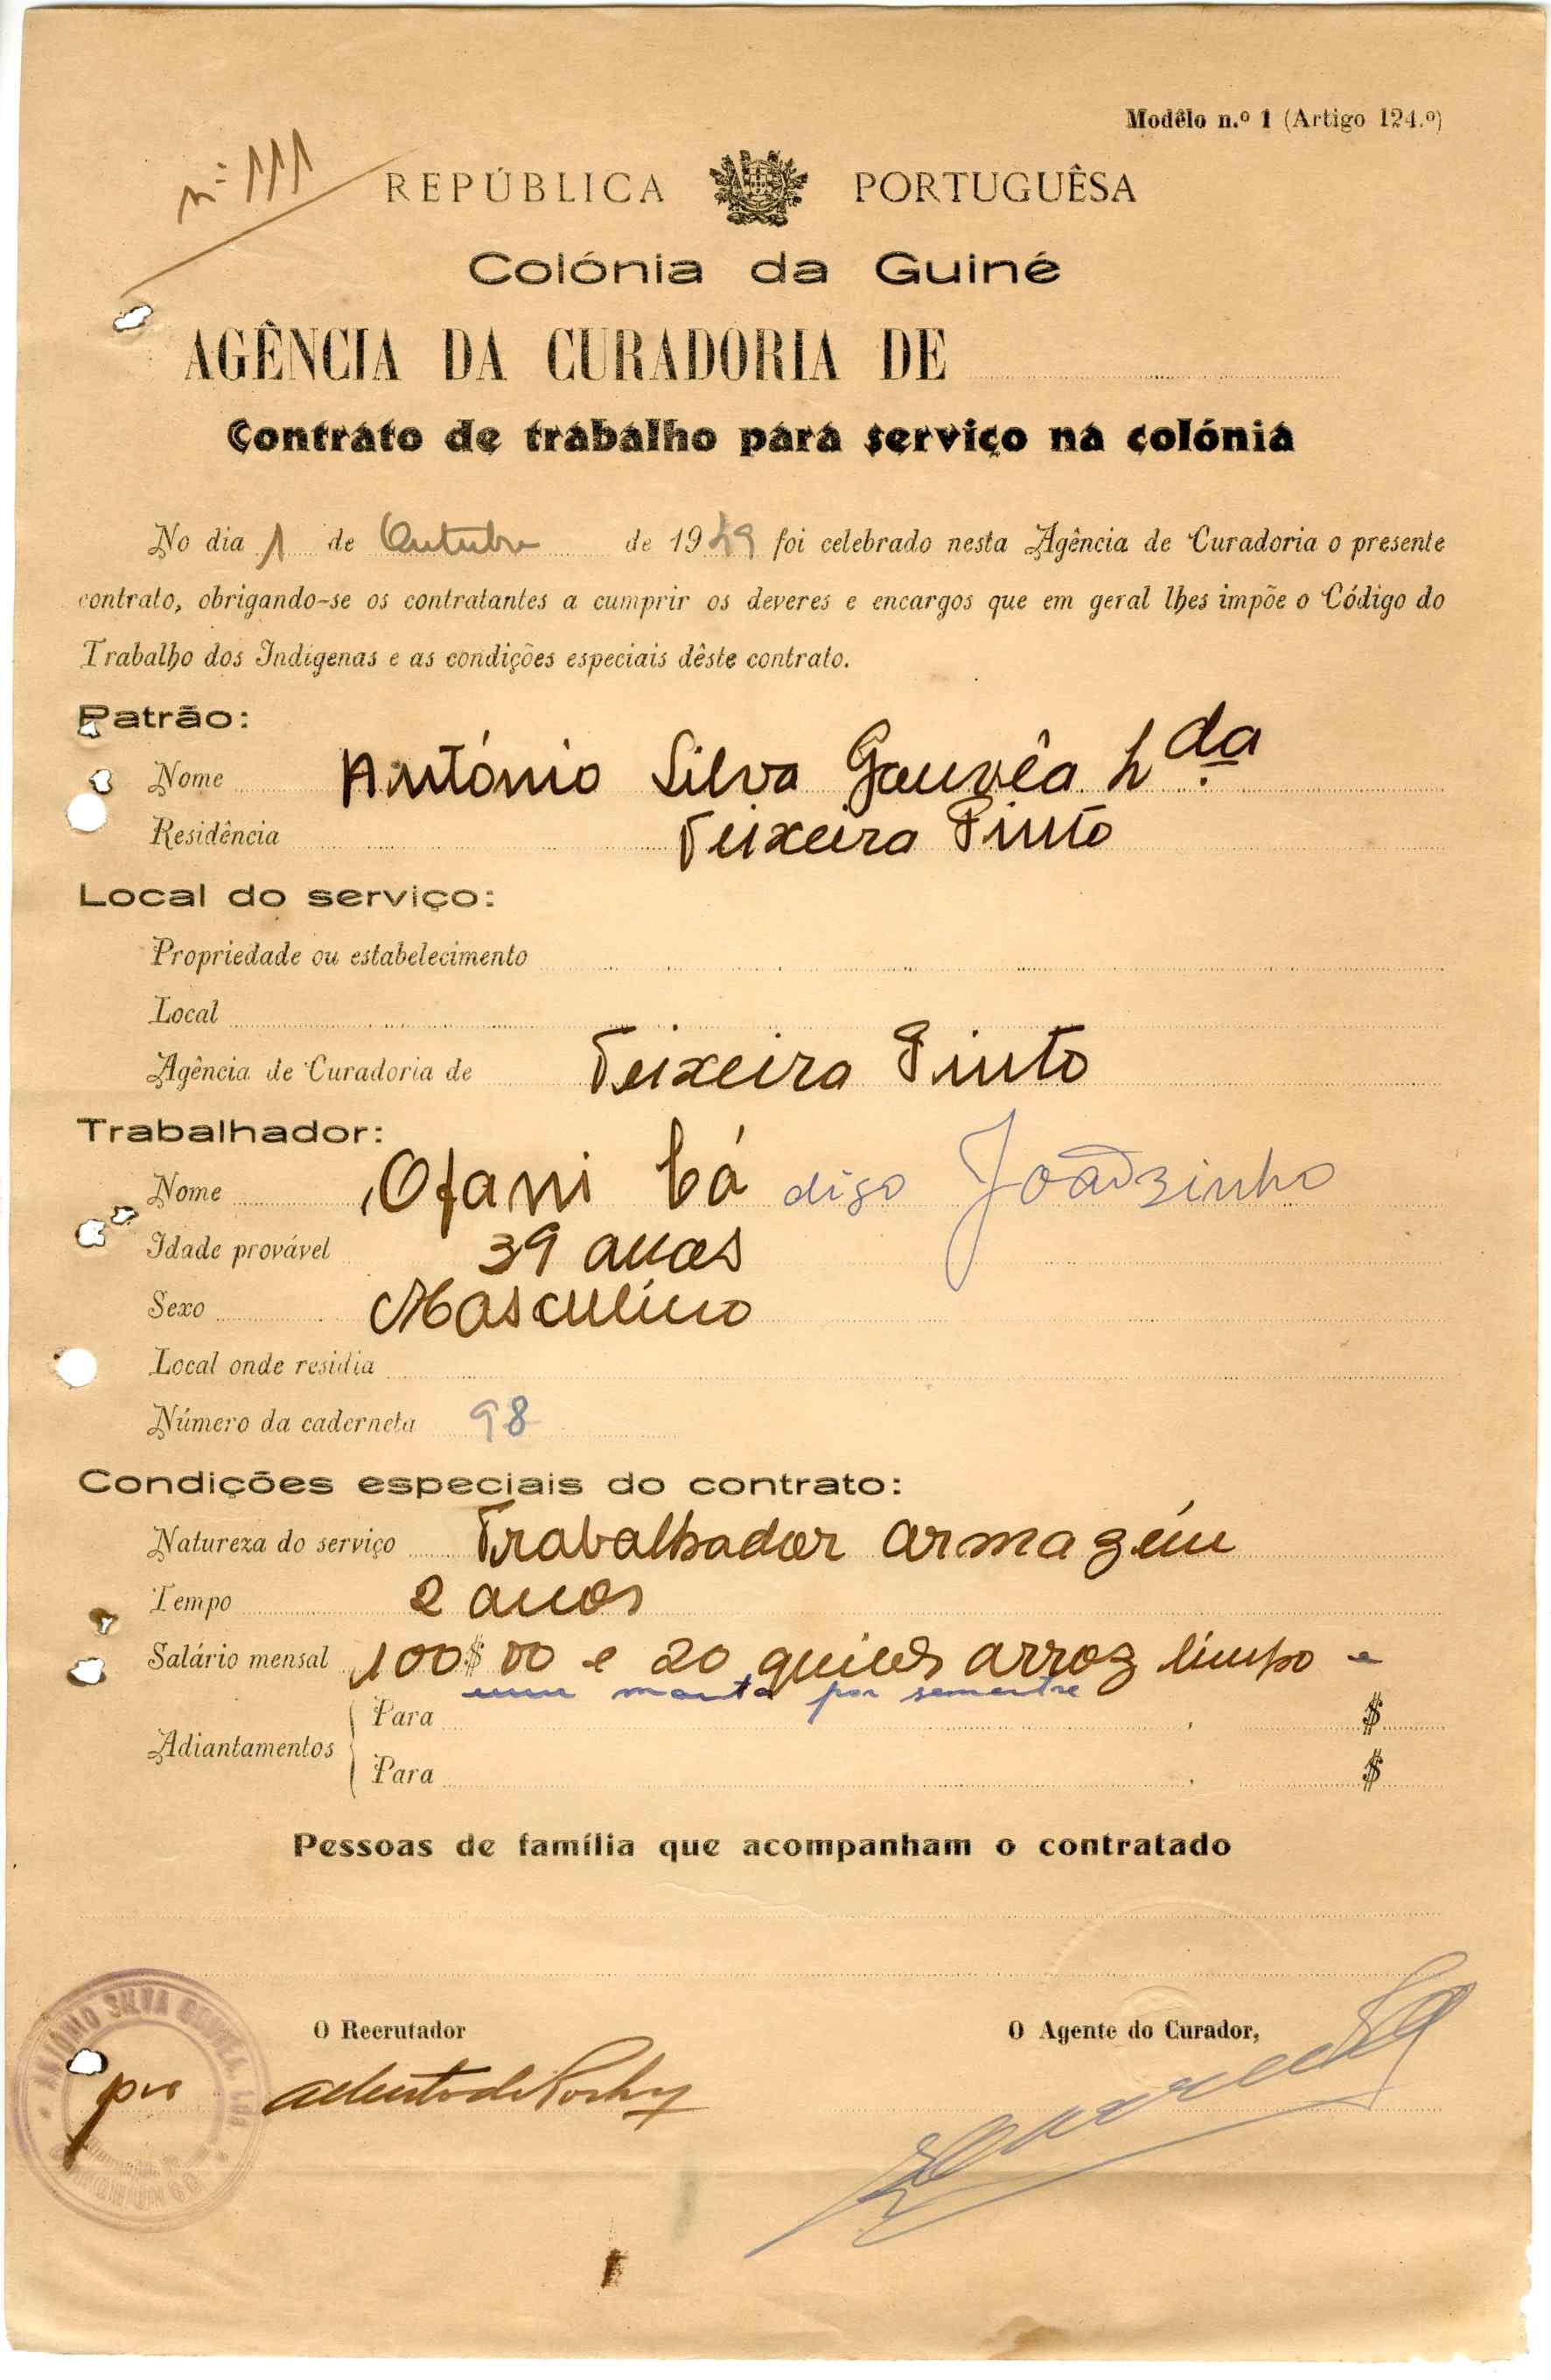 Modêlo n.º 1 (Artigo 124.º)
nº 111
REPÚBLICA PORTUGUÊSA
Colónia da Guiné
AGÊNCIA DA CURADORIA DE
Contrato de trabalho para serviço na colónia
No dia 1 de Outubro de 1949 foi celebrado nesta Agência de Curadoria o presente
contrato, obrigando-se os contratantes a cumprir os deveres e encargos que em geral lhes impõe o Código do
Trabalho dos Indígenas e as condições especiais dêste contrato.
Patrão:
Nome António Silva Gouvêa Lda.
Residência Teixeira Pinto
Local do serviço:
Propriedade ou estabelecimento
Local
Agência de Curadoria de Teixeira Pinto
Trabalhador:
Nome Ofani Cá digo Joãozinho
Idade provável 39 anos
Sexo Masculino
Local onde residia
Número da caderneta 98
Condições especiais do contrato:
Natureza do serviço Trabalhador armazém
Tempo 2 anos
Salário mensal 100$00 e 20 quilos arroz limpo e
uma manta por semestre
Adiantamentos Para $
Para $
Pessoas de família que acompanham o contratado
O Recrutador O Agente do Curador,
ANTÓNIO SILVA GOUVEA, Lda
por